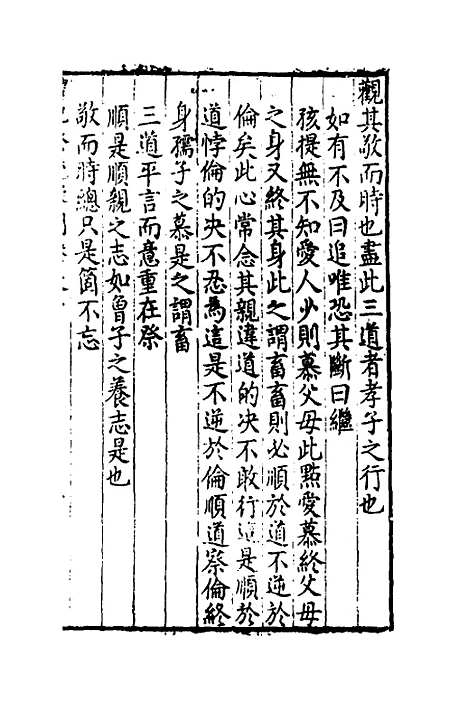 觀其敬而時也盡此三道者孝子之行也
如有不及曰追唯恐其斷曰繼
孩提無不知愛人少則慕父母此點愛慕終父母
之身又終其身此之謂畜畜則必順於道不逆於
倫矣此心常念其親違道的决不敢行這是順於
道悖倫的决不忍為這是不逆於倫順道察倫終
身孺子之慕是之謂畜
三道平言而意重在祭
順是順親之志如魯子之養志是也
敬而時總只是箇不忘